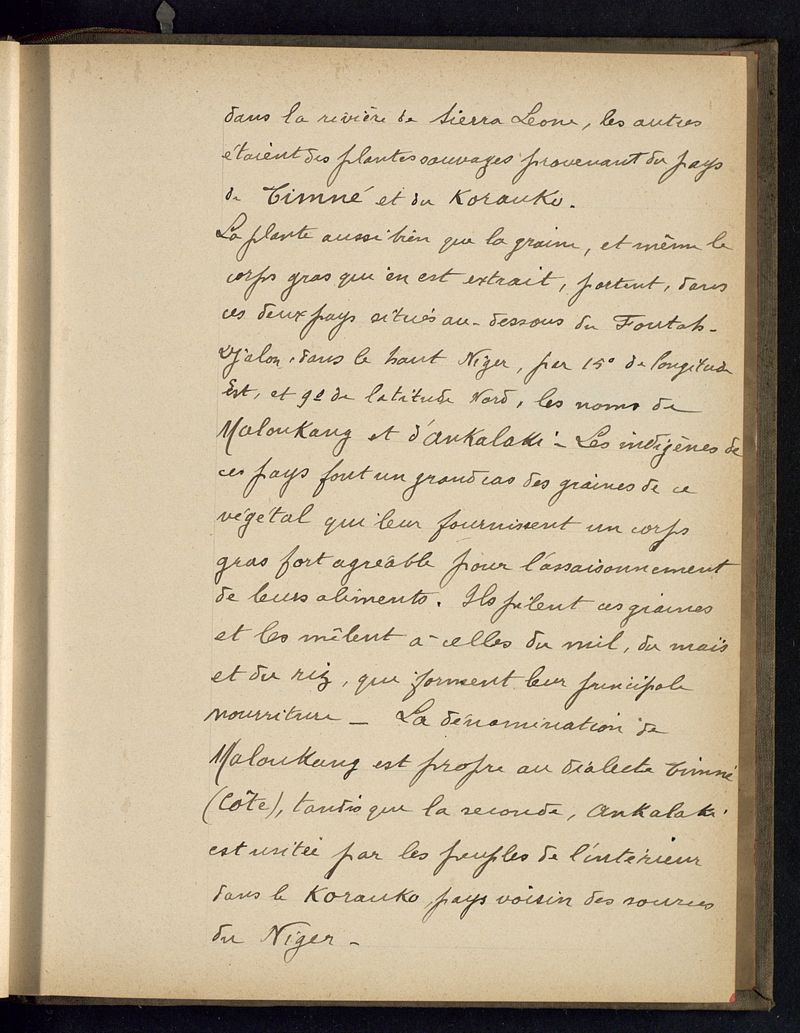 dans la rivière de Sierra Leone, les autres
étaient des plantes sauvages provenant du pays
de Timné et du Koranko.
La plante aussi bien que la graine, et même le
corps gras qui en est extrait, portent, dans
ces deux pays situés au-dessous du Foutah-
Djalon, dans le haut Niger, par 15° de longitude
Est, et 9° de latitude Nord, les noms de
Maloukang et d'ankalaki - Les indigènes de
ces pays font un grand cas des graines de ce
végétal qui leur fournissent un corps
gras fort agréable pour l'assaisonnement
de leurs aliments. Ils pilent ces graines
et les mêlent à celles du mil, du maïs
et du riz, qui forment leur principale
nourriture - La dénomination de
Maloukang est propre au dialecte Timné
(Côte), tandis que la seconde, ankalaki
est usitée par les peuples de l'intérieur
dans le Koranko, pays voisin des sources
du Niger -